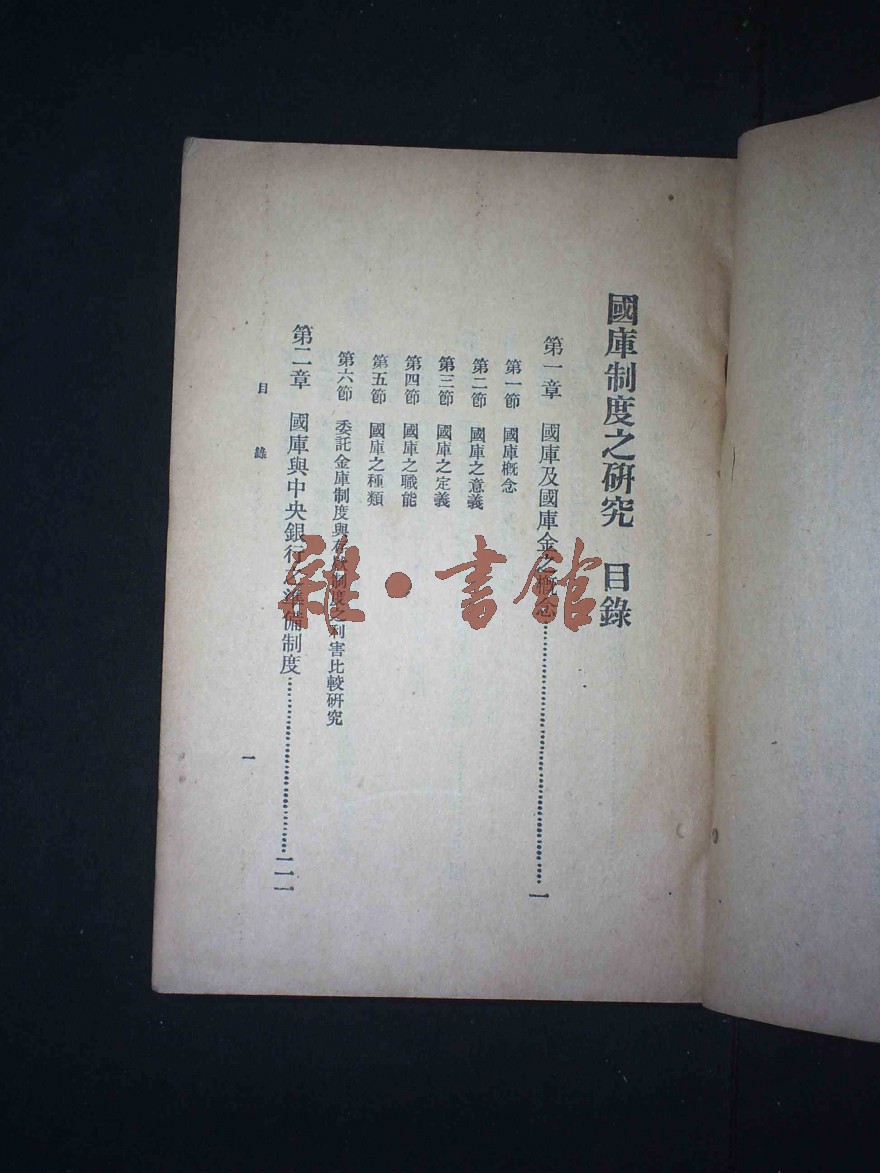 國庫制度之研究　目錄
第一章　國庫及國庫金之概念……一
第一節　國庫概念
第二節　國庫之意義
第三節　國庫之定義
第四節　國庫之職能
第五節　國庫之種類
第六節　委託金庫制度與存款制度之利害比較研究
第二章　國庫與中央銀行之準備制度……
目錄
一
雜·書館